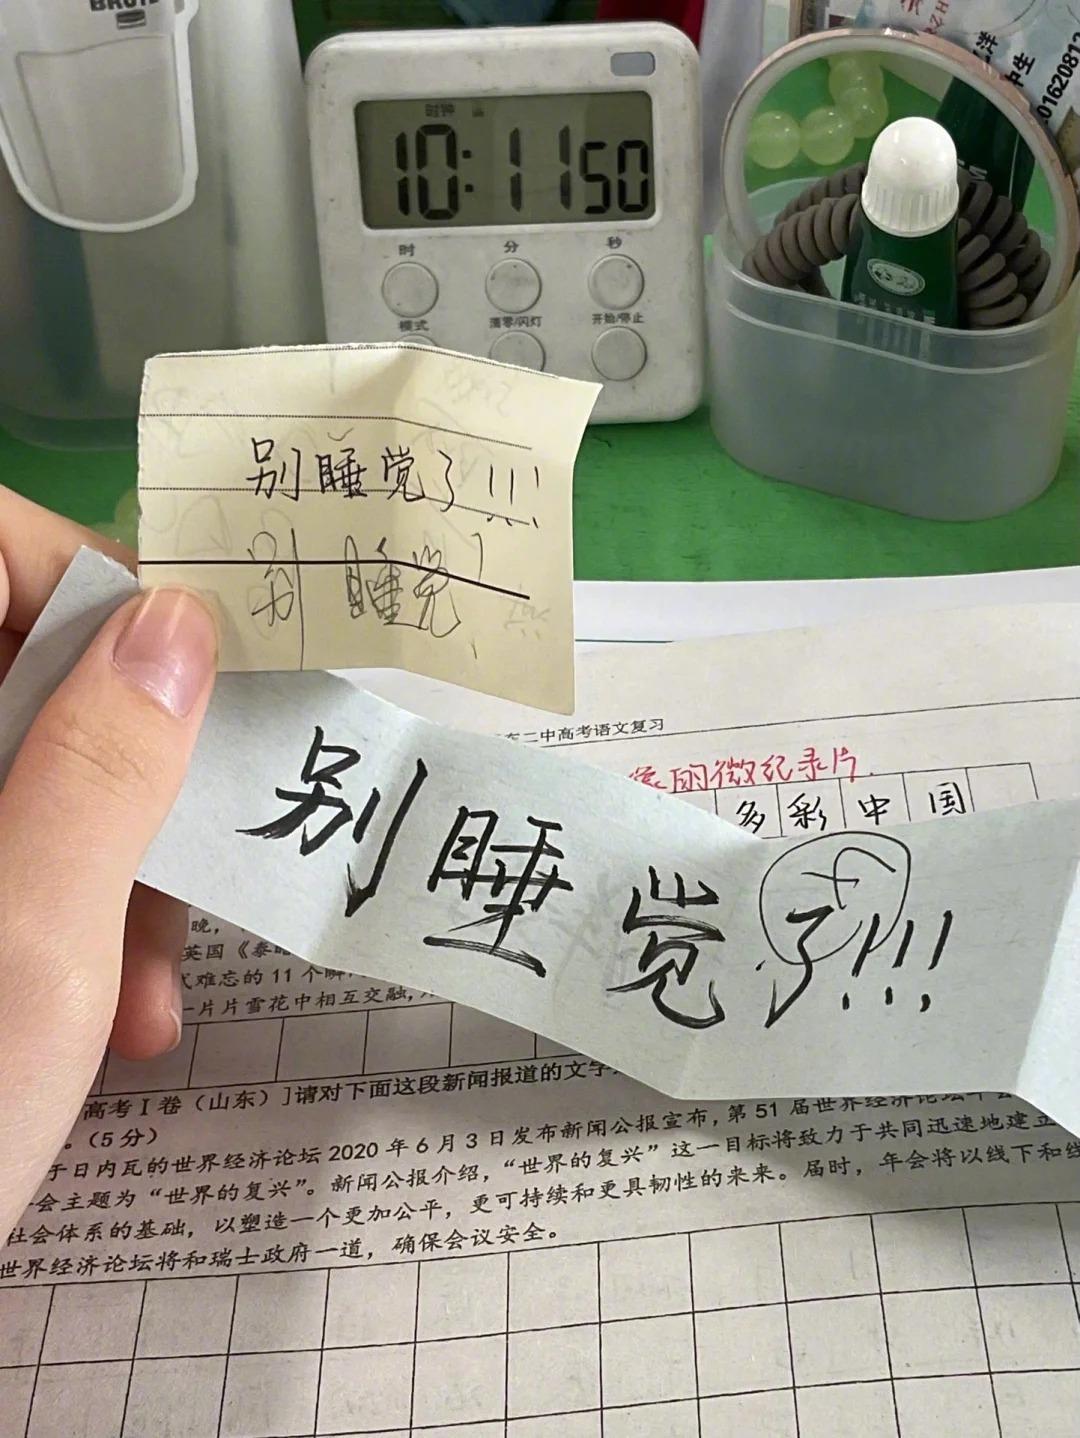 时钟
10:11 50
时 分 秒
模式 清零/闪灯 开始/停止
中生
01620812
别睡觉了!!!
别睡觉!
二中高考语文复习
的微纪录片
多彩中国
别睡觉了!!!
晚，
英国《泰晤
难忘的11个瞬
一片片雪花中相互交融，
高考Ⅰ卷（山东）]请对下面这段新闻报道的文字
。（5分）
于日内瓦的世界经济论坛2020年6月3日发布新闻公报宣布，第51届世界经济论坛年会
会主题为“世界的复兴”。新闻公报介绍，“世界的复兴”这一目标将致力于共同迅速地建立
社会体系的基础，以塑造一个更加公平，更可持续和更具韧性的未来。届时，年会将以线下和线
世界经济论坛将和瑞士政府一道，确保会议安全。